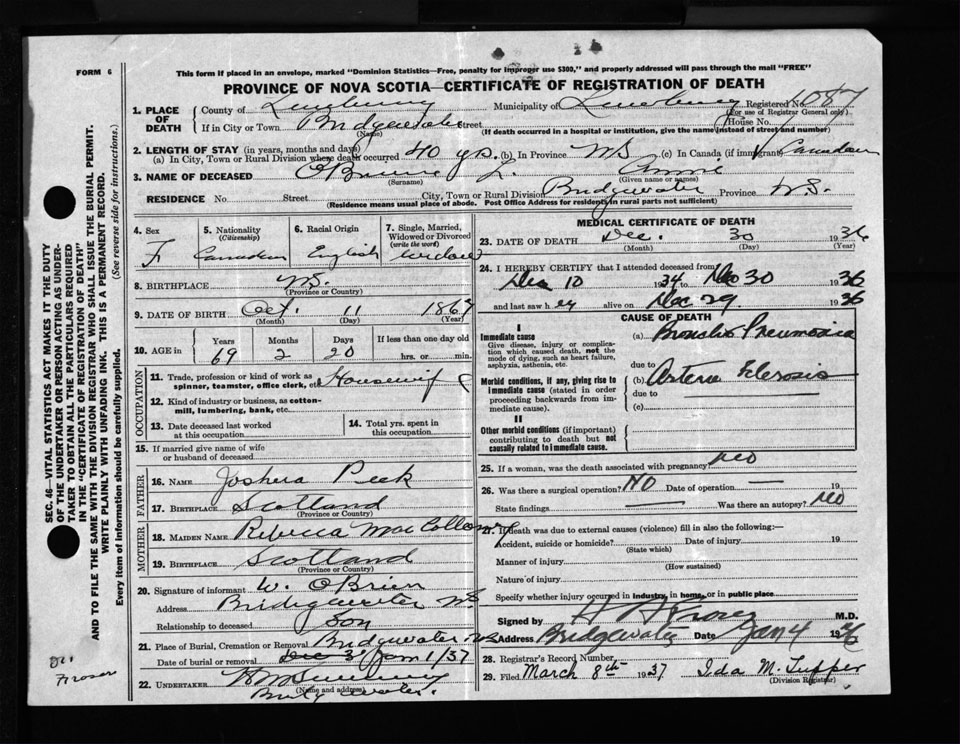 FORM 6
This form if placed in an envelope, marked "Dominion Statistics—Free, penalty for improper use $300," and properly addressed will pass through the mail "FREE"
PROVINCE OF NOVA SCOTIA—CERTIFICATE OF REGISTRATION OF DEATH
1. PLACE OF DEATH County of Lunenburg Municipality of Lunenburg Registered No. 1087
(For use of Registrar General only)
If in City or Town Bridgewater Street House No.
(Name) (If death occurred in a hospital or institution, give the name instead of street and number)
2. LENGTH OF STAY (in years, months and days)
(a) In City, Town or Rural Division where death occurred 40 yrs. (b) In Province NS (c) In Canada (if immigrant) Canadian
3. NAME OF DECEASED L. Annie
(Surname) (Given name or names)
RESIDENCE No. Street City, Town or Rural Division Bridgewater Province N.S.
(Residence means usual place of abode. Post Office Address for residents in rural parts not sufficient)
4. Sex F
5. Nationality (Citizenship) Canadian
6. Racial Origin English
7. Single, Married, Widowed or Divorced (write the word) Widow
8. BIRTHPLACE NS.
(Province or Country)
9. DATE OF BIRTH Oct. 11 1867
(Month) (Day) (Year)
10. AGE in Years Months Days If less than one day old
69 2 20 hrs. or min.
OCCUPATION
11. Trade, profession or kind of work as spinner, teamster, office clerk, etc. Housewife
12. Kind of industry or business, as cotton-mill, lumbering, bank, etc.
13. Date deceased last worked at this occupation
14. Total yrs. spent in this occupation
15. If married give name of wife or husband of deceased
FATHER
16. NAME Joshua Peek
17. BIRTHPLACE Scotland
(Province or Country)
MOTHER
18. MAIDEN NAME Rebecca
19. BIRTHPLACE Scotland
(Province or Country)
20. Signature of informant W. OBrien
Address Bridgewater NS
Relationship to deceased Son
21. Place of Burial, Cremation or Removal Bridgewater NS
Date of burial or removal Dec 31 Jan 1/37
22. UNDERTAKER
(Name and address)
Bridgewater.
MEDICAL CERTIFICATE OF DEATH
23. DATE OF DEATH Dec. 30 1936
(Month) (Day) (Year)
24. I HEREBY CERTIFY that I attended deceased from
Dec 10 1934 to Dec 30 1936
and last saw her alive on Dec 29 1936
CAUSE OF DEATH
I
Immediate cause
Give disease, injury or complication which caused death, not the mode of dying, such as heart failure, asphyxia, asthenia, etc.
(a) Broncho Pneumonia
due to
Morbid conditions, if any, giving rise to immediate cause (stated in order proceeding backwards from immediate cause).
(b) Arterio Sclerosis
due to
(c)
II
Other morbid conditions (if important) contributing to death but not causally related to immediate cause.
25. If a woman, was the death associated with pregnancy? No
26. Was there a surgical operation? No Date of operation 19
State findings Was there an autopsy? No
27. If death was due to external causes (violence) fill in also the following:—
Accident, suicide or homicide? Date of injury 19
(State which)
Manner of injury
(How sustained)
Nature of injury
Specify whether injury occurred in industry, in home, or in public place
Signed by M.D.
Address Bridgewater Date Jan 4 1936
28. Registrar's Record Number
29. Filed March 8th 1937 Ida M. Tupper
(Division Registrar)
SEC. 46—VITAL STATISTICS ACT MAKES IT THE DUTY
OF THE UNDERTAKER OR PERSON ACTING AS UNDERTAKER
TO OBTAIN ALL THE PARTICULARS REQUIRED
IN THE "CERTIFICATE OF REGISTRATION OF DEATH"
AND TO FILE THE SAME WITH THE DIVISION REGISTRAR WHO SHALL ISSUE THE BURIAL PERMIT.
WRITE PLAINLY WITH UNFADING INK. THIS IS A PERMANENT RECORD.
Every item of information should be carefully supplied. (See reverse side for instructions.)